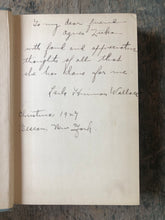 To my dear friend
Agnes
with fond and appreciative
thoughts of all that
she has done for me
Lulu Wallace
Christmas 1927
New York